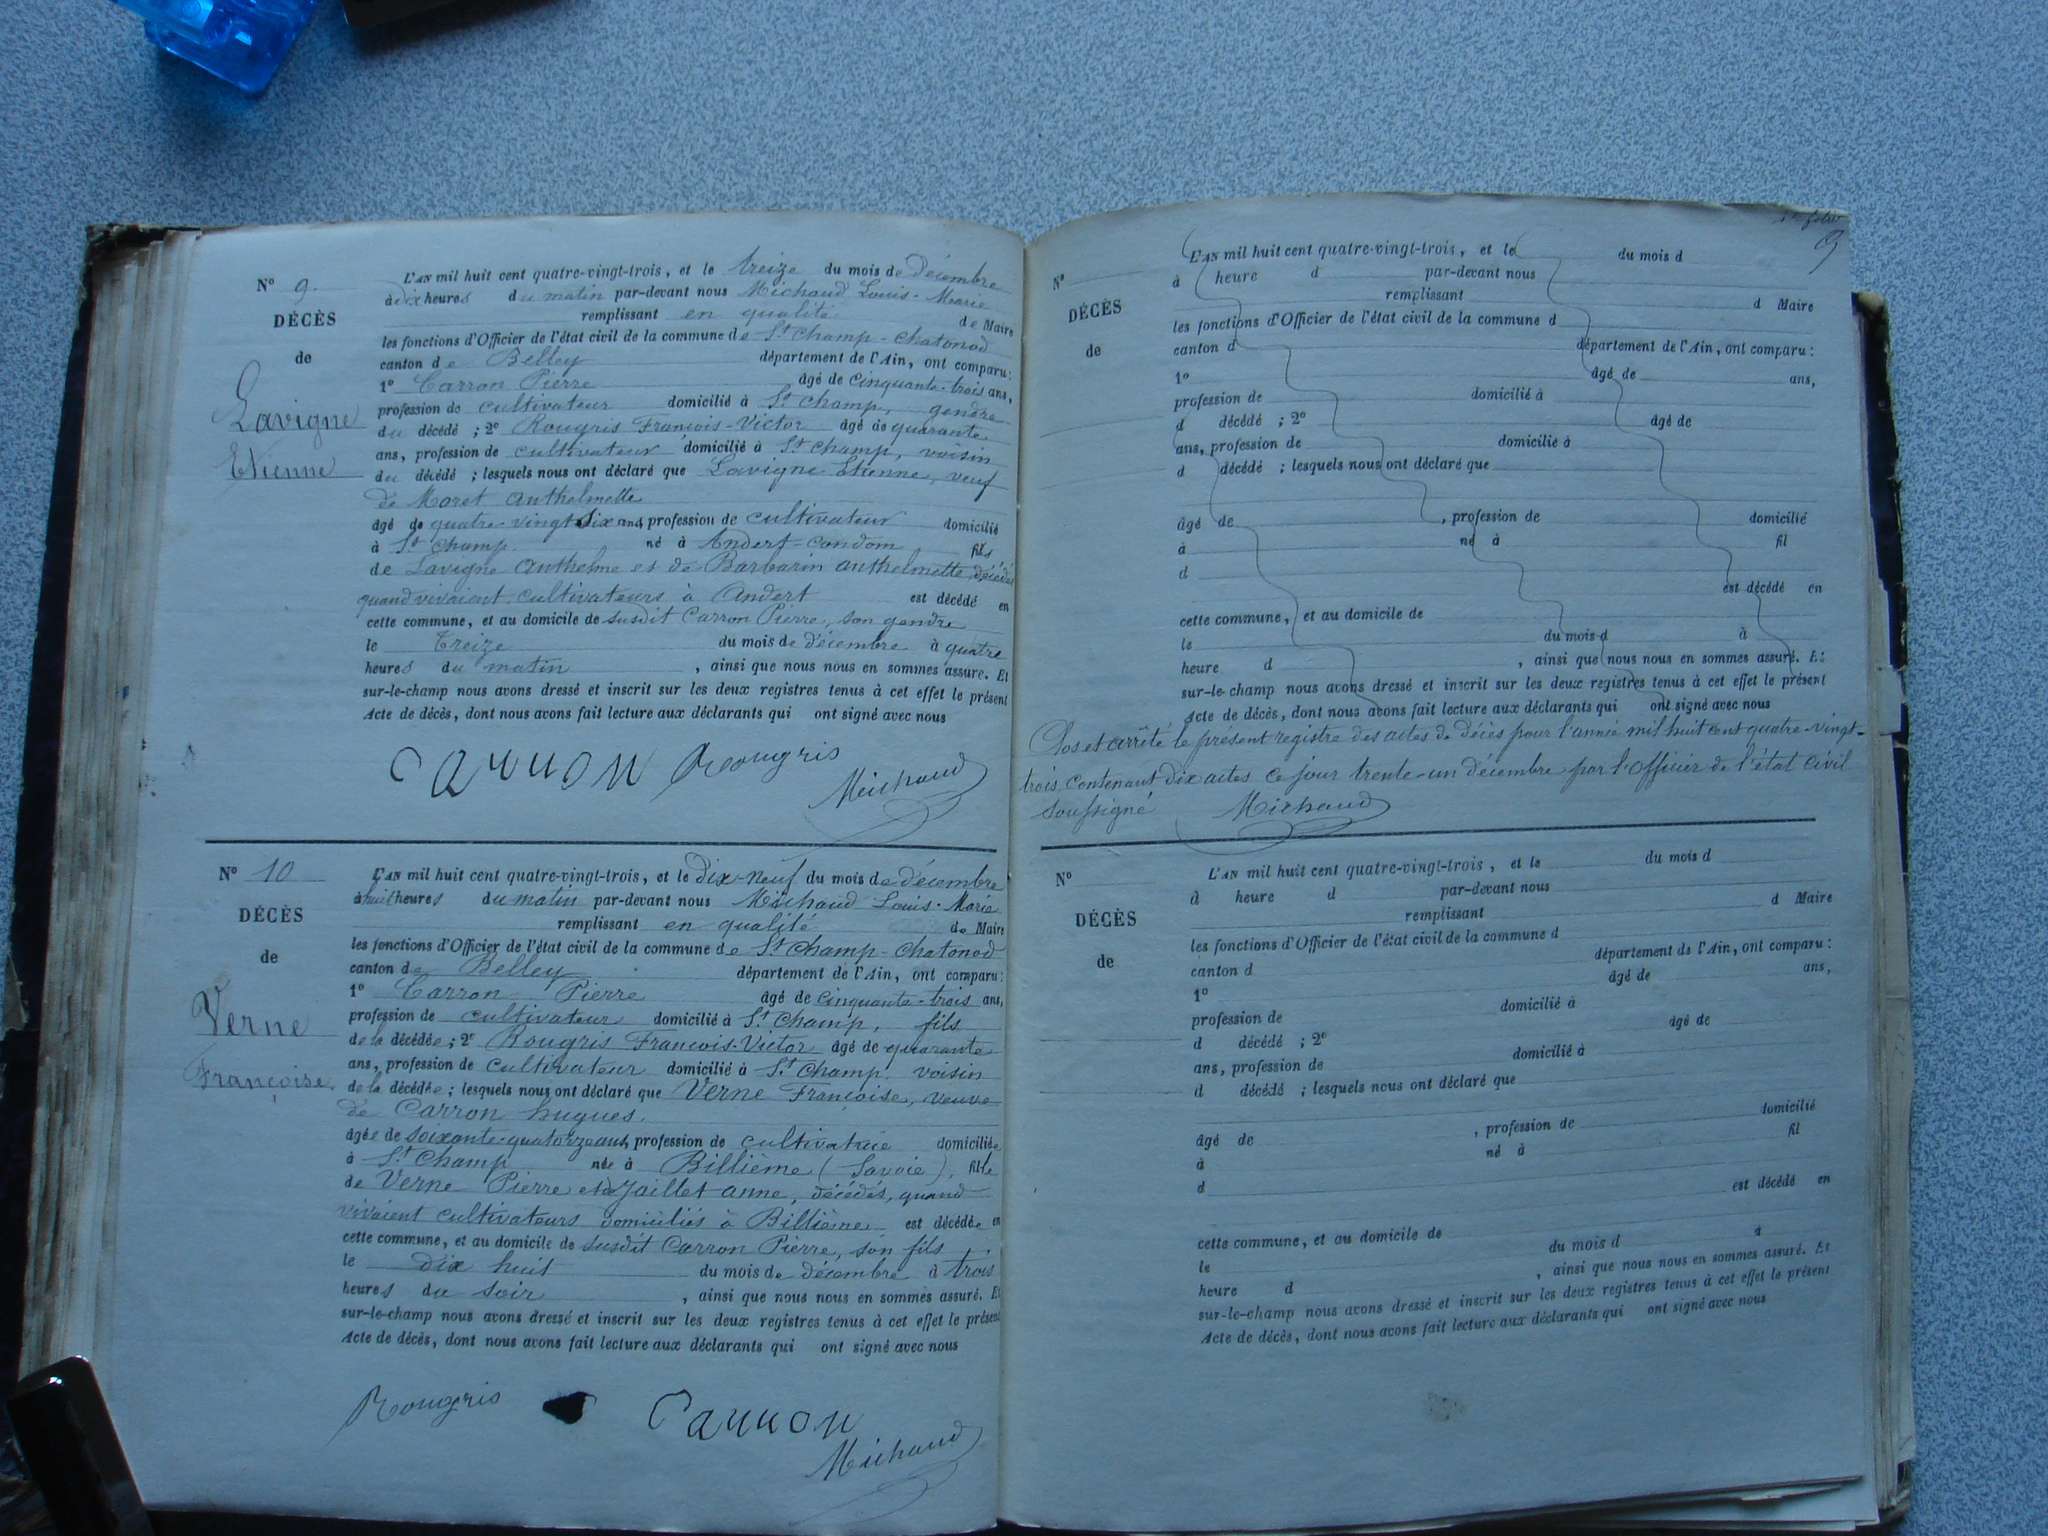 N° 9.
DÉCÈS
de
Lavigne
Etienne
L'AN mil huit cent quatre-vingt-trois, et le treize du mois de Décembre
à dix heures du matin par-devant nous Michaud Louis-Marie
remplissant en qualité de Maire
les fonctions d'Officier de l'état civil de la commune de St Champ-Chatonod
canton de Belley département de l'Ain, ont comparu:
1° Carron Pierre âgé de cinquante-trois ans,
profession de cultivateur domicilié à St Champ, gendre
du décédé ; 2° Rougris François-Victor âgé de quarante
ans, profession de cultivateur domicilié à St Champ, voisin
du décédé ; lesquels nous ont déclaré que Lavigne Etienne, veuf
de Moret anthelmette
âgé de quatre vingt Six ans, profession de cultivateur domicilié
à St Champ né à Andert-Condom fils
de Lavigne Anthelme et de Barbarin anthelmette, décédés
quand vivaient cultivateurs à Andert est décédé en
cette commune, et au domicile de susdit Carron Pierre, son gendre
le Treize du mois de décembre à quatre
heures du matin , ainsi que nous nous en sommes assuré. Et
sur-le-champ nous avons dressé et inscrit sur les deux registres tenus à cet effet le présent
Acte de décès, dont nous avons fait lecture aux déclarants qui ont signé avec nous
Carron Rougris
Michaud
N° 10
DÉCÈS
de
Verne
Françoise.
L'AN mil huit cent quatre-vingt-trois, et le Dix-neuf du mois de décembre
à huit heures du matin par-devant nous Michaud Louis-Marie
remplissant en qualité de Maire
les fonctions d'Officier de l'état civil de la commune de St Champ-Chatonod
canton de Belley département de l'Ain, ont comparu:
1° Carron Pierre âgé de cinquante-trois ans,
profession de cultivateur domicilié à St Champ, fils
de la décédée ; 2° Rougris François-Victor âgé de quarante
ans, profession de cultivateur domicilié à St Champ. voisin
de la décédée ; lesquels nous ont déclaré que Verne Françoise, veuve
de Carron hugues.
âgée de soixante-quatorze ans, profession de cultivatrice domiciliée
à St Champ née à Billième (Savoie), fille
de Verne Pierre et de Jaillet anne, décédés, quand
vivaient cultivateurs domiciliés à Billième est décédée en
cette commune, et au domicile de susdit Carron Pierre, son fils
le dix huit du mois de décembre à trois
heures du soir , ainsi que nous nous en sommes assuré. Et
sur-le-champ nous avons dressé et inscrit sur les deux registres tenus à cet effet le présent
Acte de décès, dont nous avons fait lecture aux déclarants qui ont signé avec nous
Rougris Carron
Michaud
9
N°
DÉCÈS
de
L'AN mil huit cent quatre-vingt-trois, et le du mois d
à heure d par-devant nous
remplissant d Maire
les fonctions d'Officier de l'état civil de la commune d
canton d département de l'Ain, ont comparu:
1° âgé de ans,
profession de domicilié à
d décédé ; 2° âgé de
ans, profession de domicilié à
d décédé ; lesquels nous ont déclaré que
âgé de , profession de domicilié
à né à fil
d
est décédé en
cette commune, et au domicile de
le du mois d à
heure d , ainsi que nous nous en sommes assuré. Et
sur-le-champ nous avons dressé et inscrit sur les deux registres tenus à cet effet le présent
Acte de décès, dont nous avons fait lecture aux déclarants qui ont signé avec nous
Clos et arrêté le présent registre des actes de décès pour l'année mil huit cent quatre-vingt-
trois, contenant dix actes ce jour trente-un décembre par l'Officier de l'état civil
soussigné Michaud
N°
DÉCÈS
de
L'AN mil huit cent quatre-vingt-trois, et le du mois d
à heure d par-devant nous
remplissant d Maire
les fonctions d'Officier de l'état civil de la commune d
canton d département de l'Ain, ont comparu:
1° âgé de ans,
profession de domicilié à
d décédé ; 2° âgé de
ans, profession de domicilié à
d décédé ; lesquels nous ont déclaré que
âgé de , profession de domicilié
à né à fil
d
est décédé en
cette commune, et au domicile de
le du mois d à
heure d , ainsi que nous nous en sommes assuré. Et
sur-le-champ nous avons dressé et inscrit sur les deux registres tenus à cet effet le présent
Acte de décès, dont nous avons fait lecture aux déclarants qui ont signé avec nous